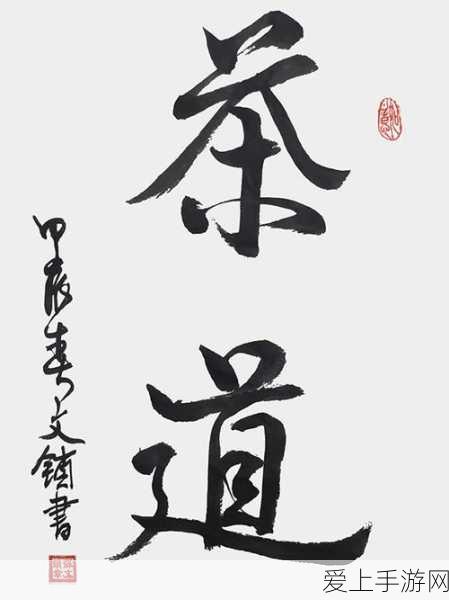 茶道
甲辰春月文镇書
爱上手游网